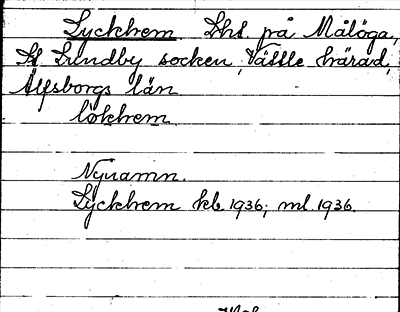 Lyckhem. Lht på Målöga,
St. Lundby socken, Vättle härad,
Älfsborgs län
lökhem
Nynamn.
Lyckhem kb. 1936; ml. 1936.